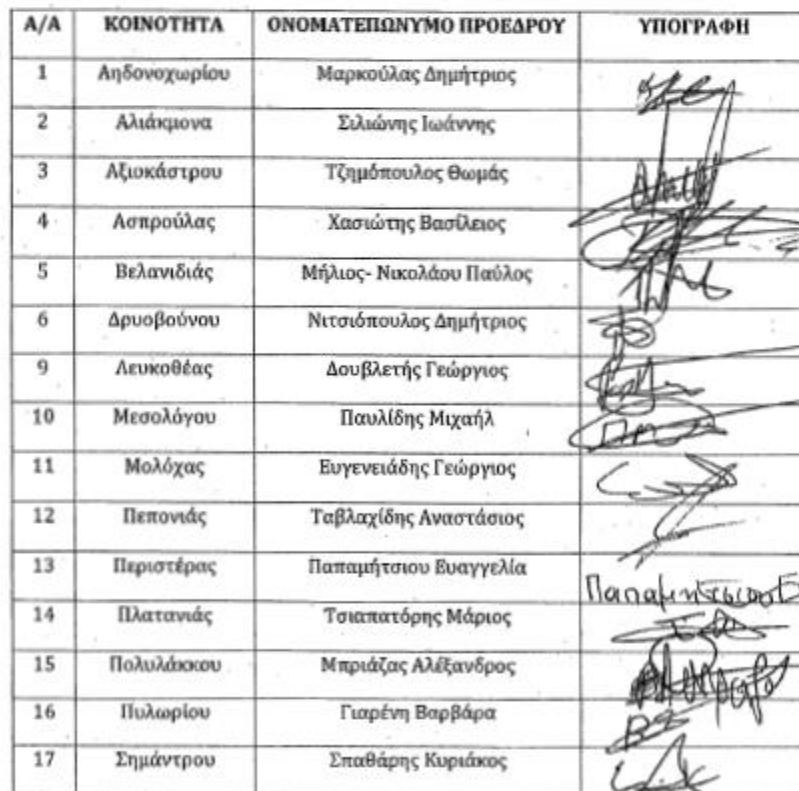 Α/Α ΚΟΙΝΟΤΗΤΑ ΟΝΟΜΑΤΕΠΩΝΥΜΟ ΠΡΟΕΔΡΟΥ ΥΠΟΓΡΑΦΗ
1 Αηδονοχωρίου Μαρκούλας Δημήτριος
2 Αλιάκμονα Σιλιώνης Ιωάννης
3 Αξιοκάστρου Τζημόπουλος Θωμάς
4 Ασπρούλας Χασιώτης Βασίλειος
5 Βελανιδιάς Μήλιος- Νικολάου Παύλος
6 Δρυοβούνου Νιτσιόπουλος Δημήτριος
9 Λευκοθέας Δουβλετής Γεώργιος
10 Μεσολόγου Παυλίδης Μιχαήλ
11 Μολόχας Ευγενειάδης Γεώργιος
12 Πεπονιάς Ταβλαχίδης Αναστάσιος
13 Περιστέρας Παπαμήτσιου Ευαγγελία Παπαμητσιου Ε
14 Πλατανιάς Τσιαπατόρης Μάριος
15 Πολυλάκκου Μπριάζας Αλέξανδρος
16 Πυλωρίου Γιαρένη Βαρβάρα
17 Σημάντρου Σπαθάρης Κυριάκος